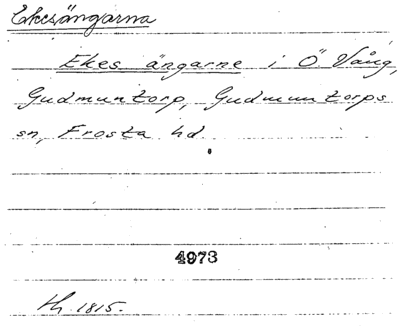 Ekesängarna
Ekes ängarne i Ö Vång,
Gudmuntorp, Gudmuntorps
sn, Frosta hd
4973
th 1815.